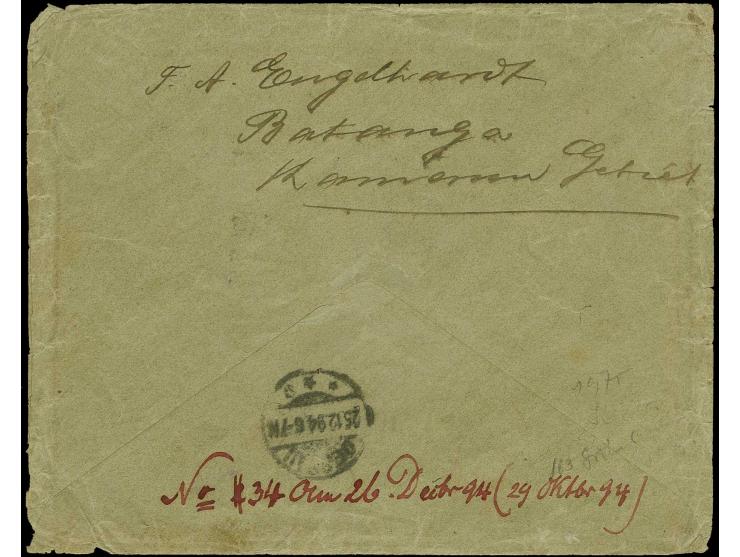 F. A. Engelhardt
Batanga
Kamerun Gebiet
1975
25.12.94.6-7N
No 34 Am 26. Decbr 94 (29 Oktbr 94)